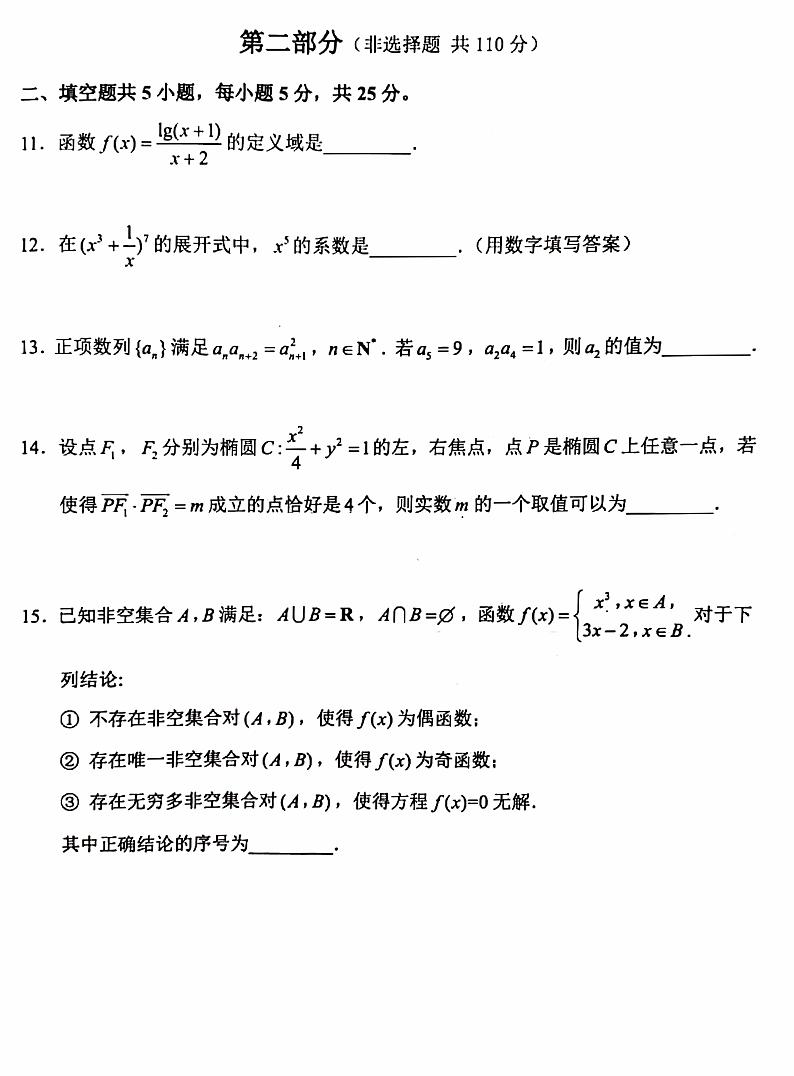 第二部分（非选择题 共110分）
二、填空题共5小题，每小题5分，共25分。
11．函数 f(x) = lg(x+1)/(x+2) 的定义域是________．
12．在 (x³ + 1/x)⁷ 的展开式中，x⁵ 的系数是________．（用数字填写答案）
13．正项数列{aₙ}满足 aₙaₙ₊₂ = a²ₙ₊₁，n∈N*．若 a₅ = 9，a₂a₄ = 1，则 a₂ 的值为________．
14．设点 F₁，F₂ 分别为椭圆 C: x²/4 + y² = 1 的左，右焦点，点 P 是椭圆 C 上任意一点，若
使得 PF₁·PF₂ = m 成立的点恰好是4个，则实数 m 的一个取值可以为________．
15．已知非空集合 A，B 满足：A∪B = R，A∩B = ∅，函数 f(x) = { x³，x∈A， 3x−2，x∈B． 对于下
列结论:
① 不存在非空集合对 (A，B)，使得 f(x) 为偶函数；
② 存在唯一非空集合对 (A，B)，使得 f(x) 为奇函数；
③ 存在无穷多非空集合对 (A，B)，使得方程 f(x)=0 无解．
其中正确结论的序号为________．